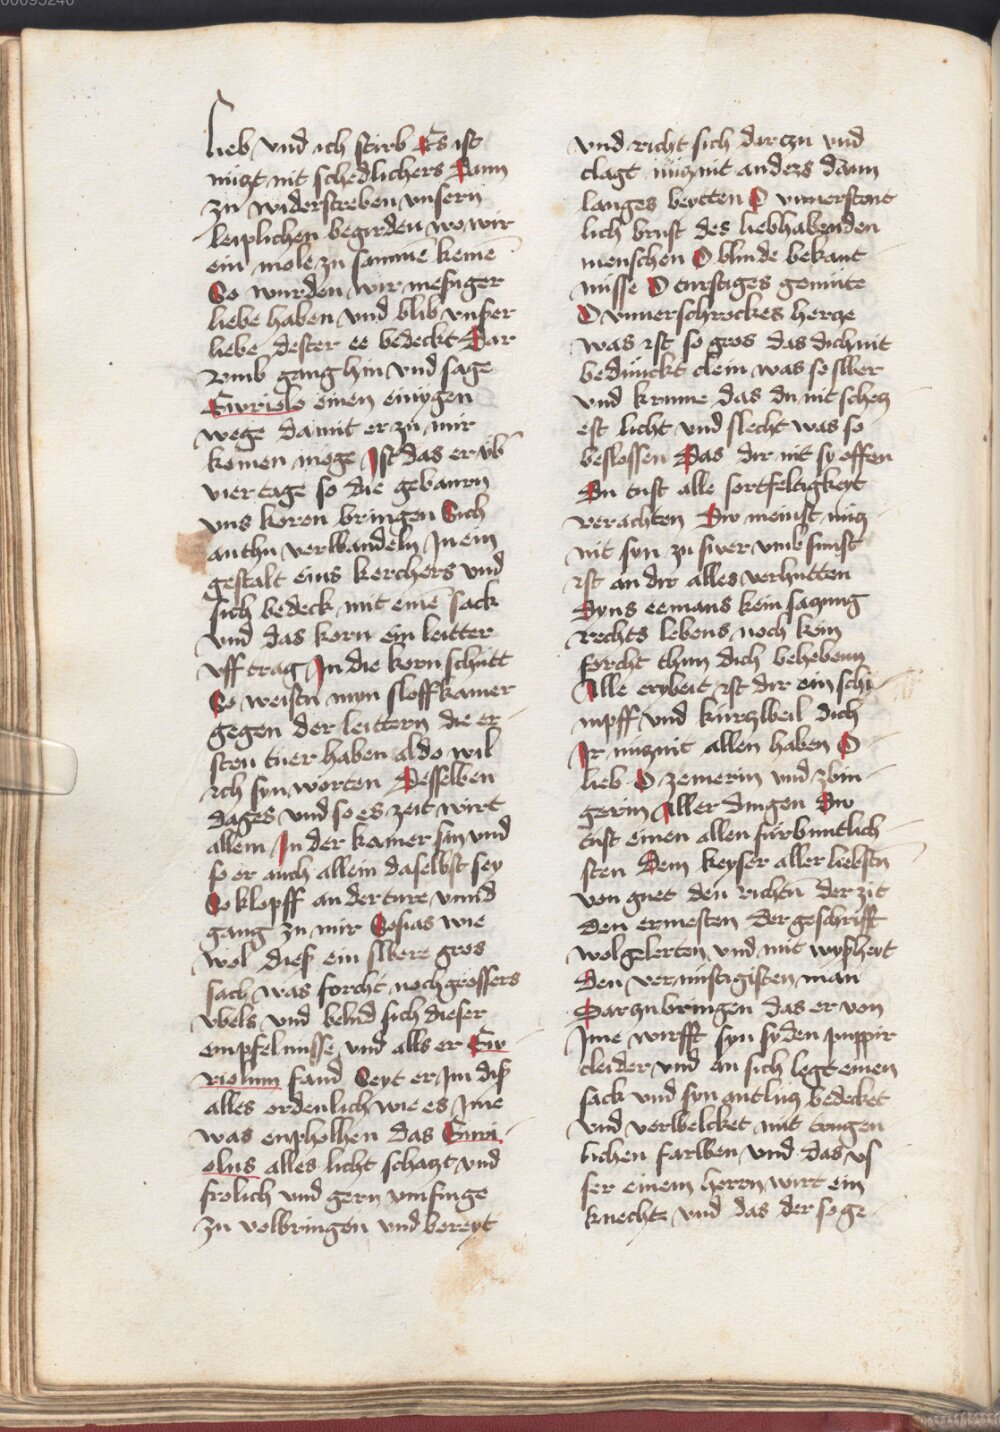 00095240
lieb vnd ich stirb Es ist
nützt nit schedlichers Dann
zu widerstreben vnsern
leiplichen begirden wo wir
ein mole zu samme keme
So wurden wir mesiger
liebe haben vnd blib vnser
liebe dester ee bedeckt Dar
vmb gang hin vnd sage
Euriolo einen einygen
wege damit er zu mir
komen moge Ist das er vb
vier tage so die gebaurn
vns koren bringen Sich
an thu verwandeln In ein
gestalt eins kerchers vnd
sich bedeck mit eine sack
vnd das korn ein leitter
vff trag In die korn schutt
So weistu myn sloffkamer
gegen der leittern die er
sten tuer haben aldo wil
ich syn worten Desselben
dages vnd so es zeit wirt
allein In der kamer sin vnd
so er auch allein daselbst sey
So klopff an der ture vnnd
gang zu mir Sosias wie
wol dieß ein swere gros
sach was forcht noch grossers
vbels vnd belud sich dieser
empfelnisse vnd alls er Eu
riolum fand Seyt er Im diß
alles ordenlich wie es Ime
was enpholhen das Euri
olus alles licht schatzt vnd
frolich vnd gern vmfinge
zu volbringen vnd bereyt
vnd richt sich darzu vnd
clagt nütznit anders dann
langes beytten O vnuerstont
lich brust des liebhabenden
menschen O blinde bekant
nisse O turstiges gemüte
O vnnerschrockes hercze
was ist so gros das dich nit
bedünckt clein was so swer
vnd krume das du nit schetz
est licht vnd slecht was so
beslossen Das dir nit sy offen
Du tust alle sortfeltigkeyt
verachten Du meinst nütz
nit syn zu swer vmb sunst
ist an dir alles verhutten
Dyns eemans kein satzung
rechts lebens noch kein
forcht thun dich behebenn
Alle erybeit ist dir ein schi
mpff vnd kurtzweil dich
Ir nutznit allen haben O
lieb O zemerin vnd zwin
gerin Aller dingen Du
tust einen allen fürbuntlich
sten Dem keyser aller liebsten
von guet den richen der zit
den ermesten der geschrifft
wolgelerten vnd mit wyßheyt
Den vernnstigisten man
Darzu bringen das er von
Ime wirfft syn syden purppir
cleider vnd an sich legt einen
sack vnd syn antlutz bedecket
vnd verwelcket mit trugen
lichen farwen vnd das vs
ser einem herrn wirt ein
knechte vnd das der so ge